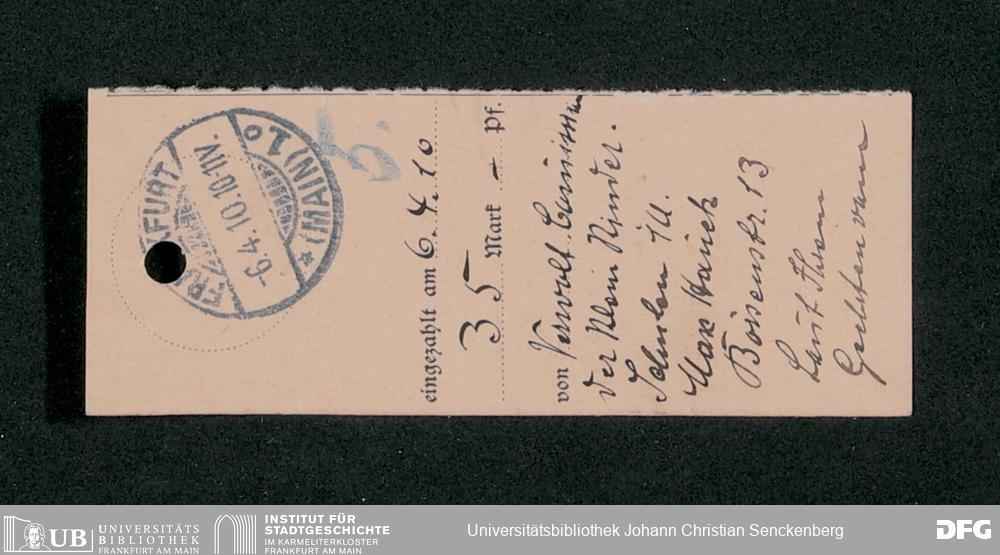 FRANKFURT (MAIN) 1 *
-6.4.10.10-11V.
5.
eingezahlt am 6.4.10
35 Mark — Pf.
von Verwalt. Commission
der Klein Kinder.
Schulen i/U.
Max Hauck
Börsenstr. 13
Laut Ihrem
UB UNIVERSITÄTS
BIBLIOTHEK
FRANKFURT AM MAIN
INSTITUT FÜR
STADTGESCHICHTE
IM KARMELITERKLOSTER
FRANKFURT AM MAIN
Universitätsbibliothek Johann Christian Senckenberg
DFG